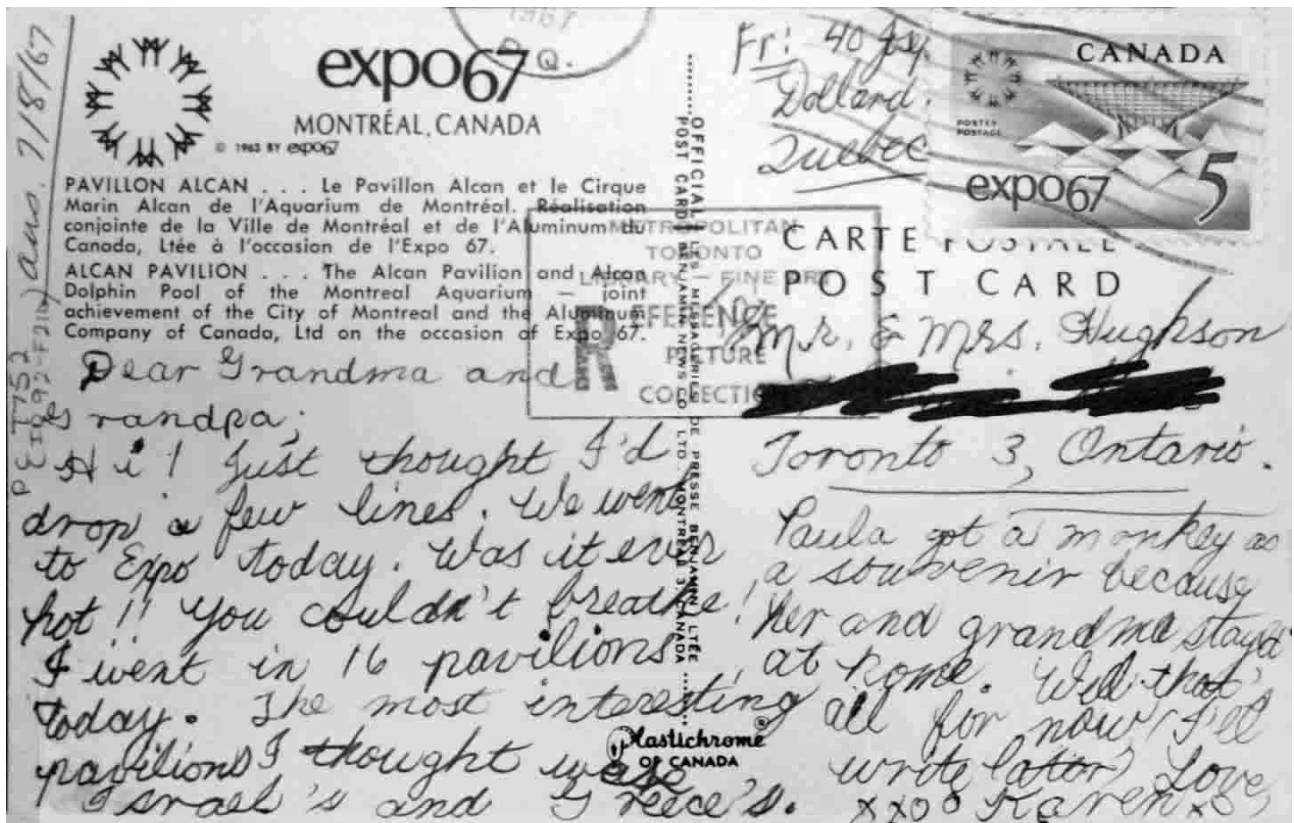 expo67
MONTRÉAL, CANADA
© 1963 BY expo67
PAVILLON ALCAN . . . Le Pavillon Alcan et le Cirque
Marin Alcan de l'Aquarium de Montréal. Réalisation
conjointe de la Ville de Montréal et de l'Aluminum du
Canada, Ltée à l'occasion de l'Expo 67.
ALCAN PAVILION . . . The Alcan Pavilion and Alcan
Dolphin Pool of the Montreal Aquarium — joint
achievement of the City of Montreal and the Aluminum
Company of Canada, Ltd on the occasion of Expo 67.
Dear Grandma and
Grandpa,
Hi! Just thought I'd
drop a few lines. We went
to Expo today. Was it ever
hot!! You couldn't breathe!
I went in 16 pavilions
today. The most interesting
pavilions I thought was
Israel's and Greece's.
ans. 7/8/67
1967
P.Q.
OFFICIAL LES MESSAGERIES DE PRESSE BENJAMIN LTÉE
POST CARD BENJAMIN NEWS CO LTD. MONTREAL 3 CANADA
Plastichrome®
OF CANADA
METROPOLITAN
TORONTO
LIBRARY — FINE ART
REFERENCE
PICTURE
COLLECTION
R
Fr: 40
Dollard.
Quebec
CANADA
POSTES
POSTAGE
expo67 5
CARTE POSTALE
POST CARD
Mr. & Mrs. Hughson
Toronto 3, Ontario.
Paula got a monkey as
a souvenir because
her and grandma stayed
at home. Well that's
all for now I'll
write later Love,
Karen